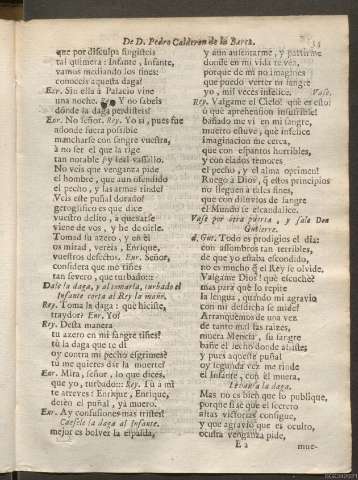 De D. Pedro Calderon de la Barca.
que por disculpa fingisteis
tal quimera: Infante, Infante,
vamos mediando los fines:
conoceis aquesta daga?
Enr. Sin ella à Palacio vine
una noche. Y no sabeis
dònde la daga perdisteis?
Enr. No señor. Rey. Yo sí, pues fue
adonde fuera possible
mancharse con sangre vuestra,
à no ser el que la rige
tan notable y leal vassallo.
No veis que venganza pide
el hombre, que aun ofendido
el pecho, y las armas rinde?
Veis este puñal dorado?
geroglifico es que dice
vuestro delito, à quexarse
viene de vos, y he de oirle.
Tomad su azero, y en èl
os mirad, vereis, Enrique,
vuestros defectos. Enr. Señor,
considera que me riñes
tan severo, que turbado::
Dale la daga, y al tomarla, turbado el
Infante corta al Rey la mano.
Rey. Toma la daga: què hiciste,
traydor? Enr. Yo?
Rey. Desta manera
tu azero en mi sangre tiñes?
tù la daga que te dì
oy contra mi pecho esgrimes?
tù me quieres dàr la muerte?
Enr. Mira, señor, lo que dices,
que yo, turbado:: Rey. Tù à mi
te atreves? Enrique, Enrique,
detèn el puñal, yà muero.
Enr. Ay confusiones mas tristes!
Caesele la daga al Infante.
mejor es bolver la espalda,
y aun ausentarme, y partirme
donde en mi vida te vèa,
porque de mi no imagines
que puedo verter tu sangre
yo, mil veces infelice. Vase.
Rey. Valgame el Cielo! què es esto?
ò què aprehension insufrible!
bañado me vì en mi sangre,
muerto estuve, què infelice
imaginacion me cerca,
que con espantos horribles,
y con elados temores
el pecho, y el alma oprime!
Ruego à Dios, q̃ estos principios
no lleguen à tales fines,
que con diluvios de sangre
el Mundo se escandalice.
Vase por otra puerta, y sale Don
Gutierre.
d. Gut. Todo es prodigios el dia:
con assombros tan terribles,
de que yo estaba escondido,
no es mucho q̃ el Rey se olvide.
Valgame Dios! què escuchè?
mas para què lo repite
la lengua, quando mi agravio
con mi desdicha se mide?
Arranquèmos de una vez
de tanto mal las raìzes,
muera Mencia, su sangre
bañe el lecho donde assistes
y pues aqueste puñal
oy segunda vez me rinde
el Infante, con èl muera.
Levanta la daga.
Mas no es bien que lo publique,
porque si sè que el secreto
altas victorias consigue,
y que agravio que es oculto,
oculta venganza pide,
E 2
mue-